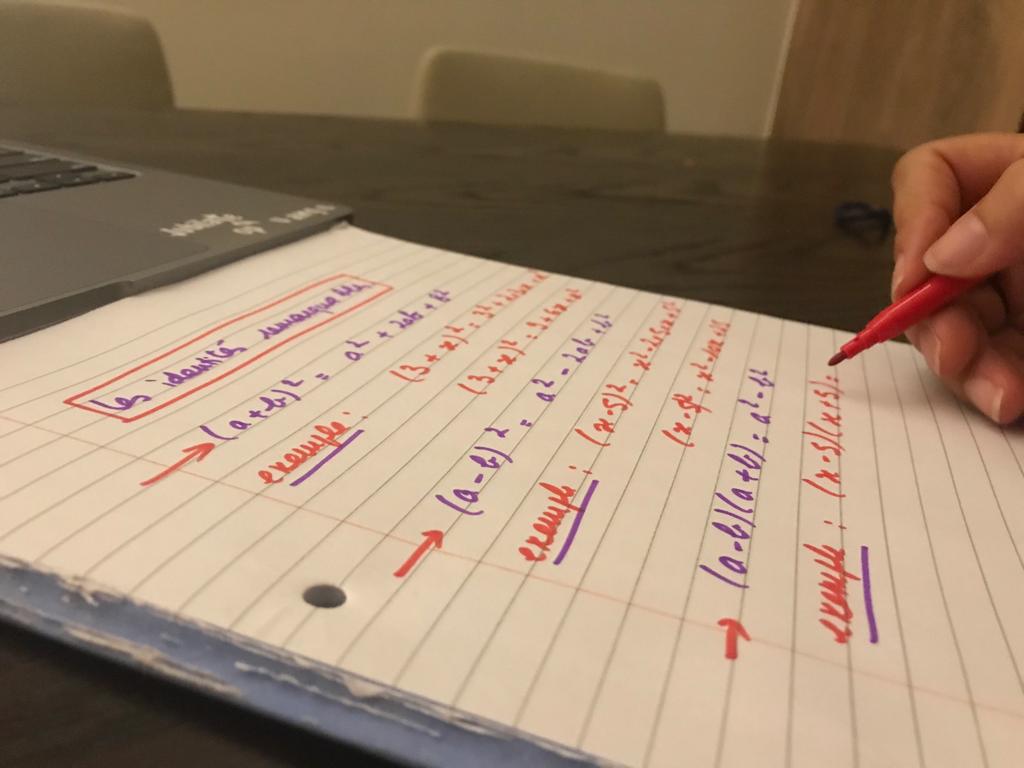 les identités remarquables
(a+b)² = a² + 2ab + b²
exemple: (3+x)² = 3² + 2·3·x + x²
(3+x)² = 9 + 6x + x²
(a-b)² = a² - 2ab + b²
exemple: (x-5)² = x² - 2·5·x + 5²
(x-5)² = x² - 10x + 25
(a-b)(a+b) = a² - b²
exemple: (x-5)(x+5) =